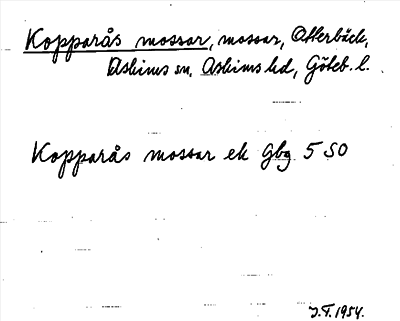 Kopparås mossar, mossar, Otterbäck,
Askims sn, Askims hd, Göteb. l.
Kopparås mossar ek Gbg 5 SO
J.F. 1954.